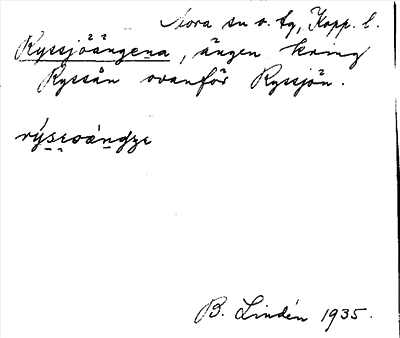 Mora sn o. tg, Kopp. l.
Ryssjöängena, ängen kring
Ryssån ovanför Ryssjön.
B. Lindén 1935.